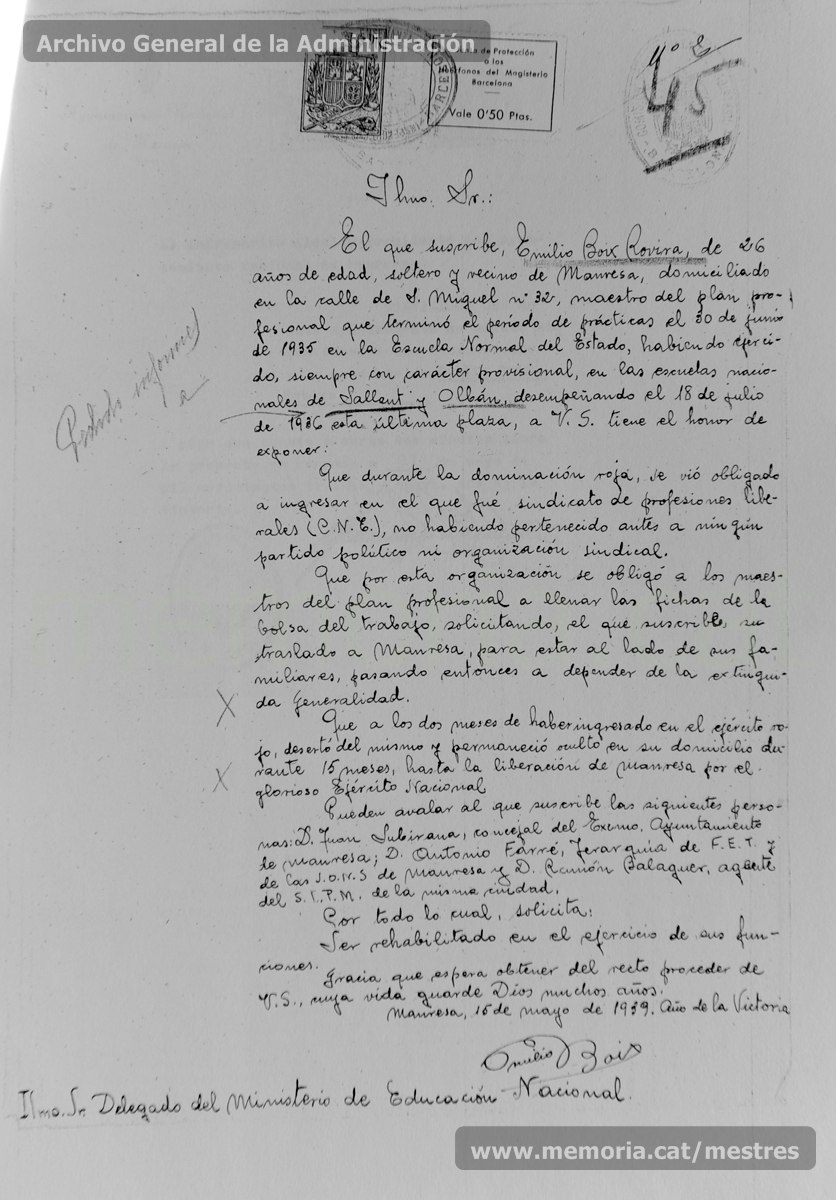 Archivo General de la Administración
de Protección
a los
Huérfanos del Magisterio
Barcelona
Vale 0'50 Ptas.
nº 2
45
Ilmo. Sr.:
El que suscribe, Emilio Boix Rovira, de 26
años de edad, soltero y vecino de Manresa, domiciliado
en la calle de S. Miguel nº 32, maestro del plan pro-
fesional que terminó el período de prácticas el 30 de junio
de 1935 en la Escuela Normal del Estado, habiendo ejerci-
do, siempre con carácter provisional, en las escuelas nacio-
nales de Sallent y Olbán, desempeñando el 18 de julio
de 1936 esta última plaza, a V. S. tiene el honor de
exponer:
Que durante la dominación roja, se vió obligado
a ingresar en el que fué sindicato de profesiones libe-
rales (C.N.T.), no habiendo pertenecido antes a ningún
partido político ni organización sindical.
Que por esta organización se obligó a los maes-
tros del plan profesional a llenar las fichas de la
bolsa del trabajo, solicitando, el que suscribe, su
traslado a Manresa, para estar al lado de sus fa-
miliares, pasando entonces a depender de la extingui-
da Generalidad.
Que a los dos meses de haber ingresado en el ejército ro-
jo, desertó del mismo y permaneció oculto en su domicilio du-
rante 15 meses, hasta la liberación de Manresa por el
glorioso Ejército Nacional
Pueden avalar al que suscribe las siguientes perso-
nas: D. Juan Subirana, concejal del Excmo. Ayuntamiento
de Manresa; D. Antonio Farré, Jerarquía de F.E.T. y
de las J.O.N.S de Manresa y D. Ramón Balaguer, agente
del S.I.P.M. de la misma ciudad.
Por todo lo cual, solicita:
Ser rehabilitado en el ejercicio de sus fun-
ciones.
Gracia que espera obtener del recto proceder de
V.S., cuya vida guarde Dios muchos años.
Manresa, 15 de mayo de 1939. Año de la Victoria
Emilio Boix
Ilmo. Sr. Delegado del Ministerio de Educación Nacional.
Pedido informes
a
X
X
www.memoria.cat/mestres